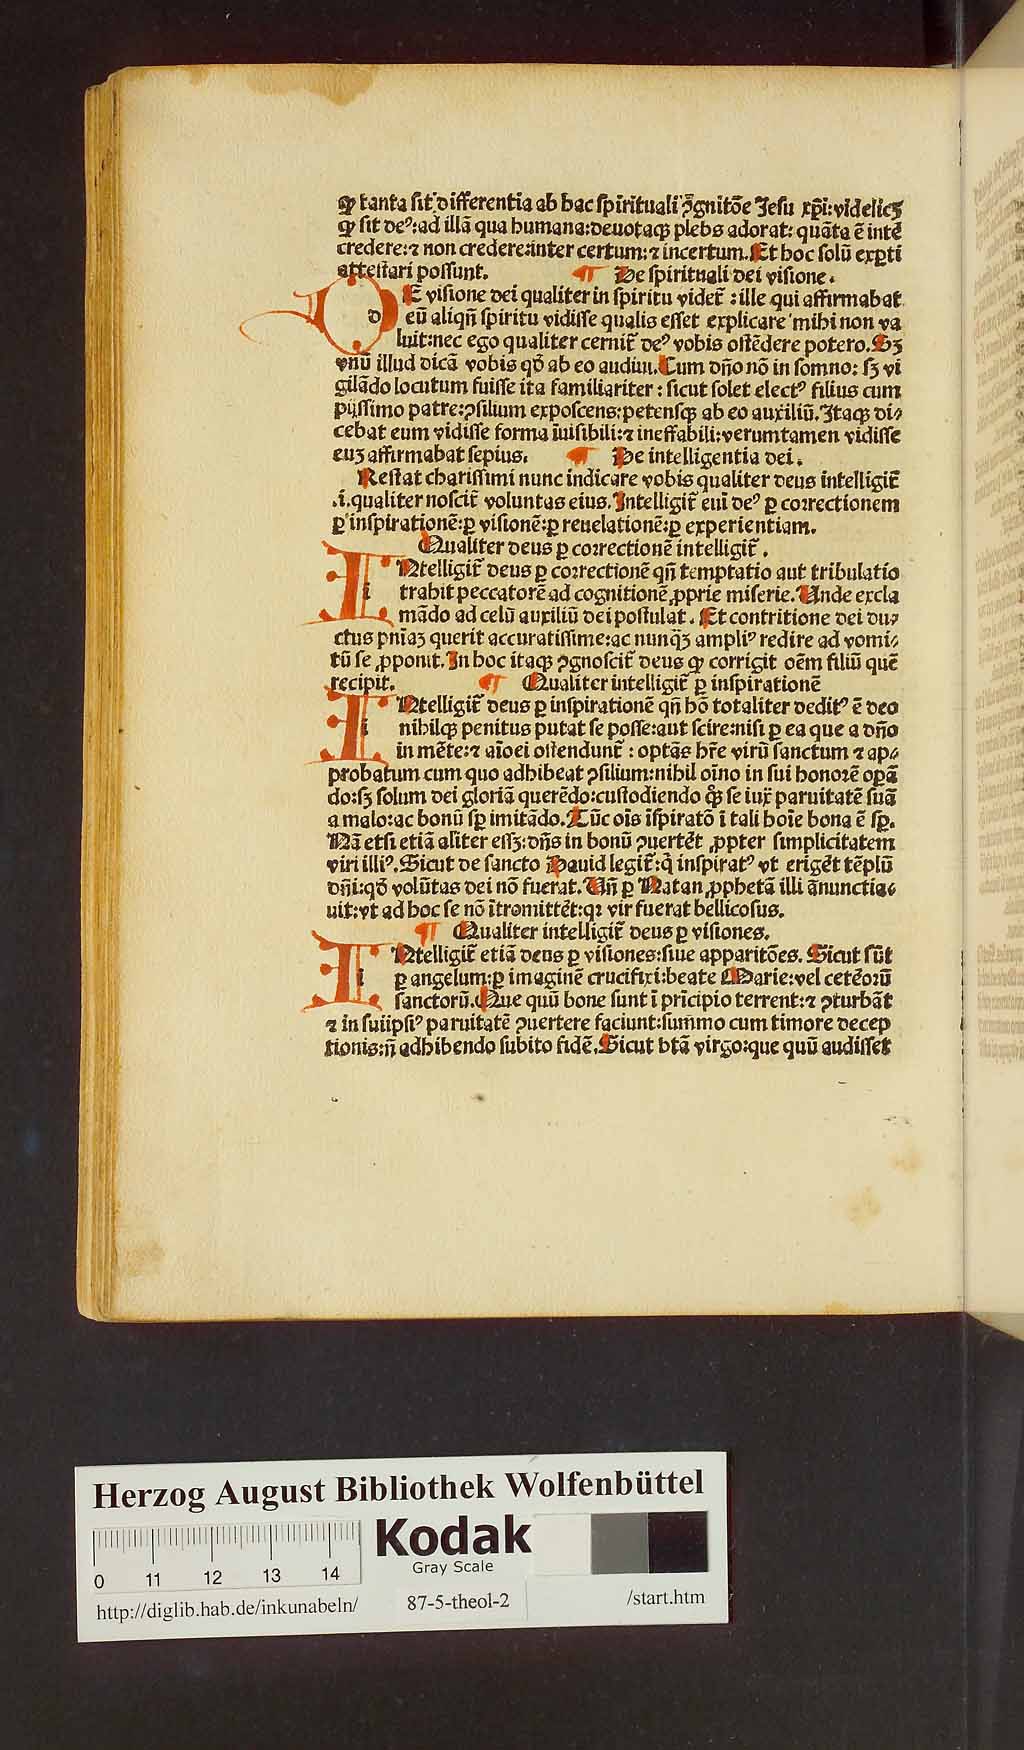 ꝙ tanta sit differentia ab hac spirituali ꝯgnitōe Jesu xp̄i: videlicꝫ
ꝙ sit deꝰ: ad illā qua humana: deuotaqꝫ plebs adorat: quāta ē inté
credere: ⁊ non credere: inter certum: ⁊ incertum. Et hoc solū exꝑti
attestari possunt. ¶ De spirituali dei visione.
DE visione dei qualiter in spiritu videt᷑: ille qui affirmabat
d eū aliqn̄ spiritu vidisse qualis esset explicare mihi non va
luit: nec ego qualiter cernit᷑ deꝰ vobis ostēdere potero. Sꝫ
vnū illud dicā vobis qd̓ ab eo audiui. Cum dn̄o nō in somno: sꝫ vi
gilādo locutum fuisse ita familiariter: sicut solet electꝰ filius cum
pijssimo patre: ꝯsilium exposcens: petensqꝫ ab eo auxiliū. Itaqꝫ di⸗
cebat eum vidisse forma īuisibili: ⁊ ineffabili: verumtamen vidisse
euꝫ affirmabat sepius. ¶ De intelligentia dei.
Restat charissimi nunc indicare vobis qualiter deus intelligit᷑
.i. qualiter noscit᷑ voluntas eius. Intelligit᷑ eni̅ deꝰ ꝑ correctionem
ꝑ inspirationē: ꝑ visionē: ꝑ reuelationē: ꝑ experientiam.
Qualiter deus ꝑ correctionē intelligit᷑.
INtelligit᷑ deus ꝑ correctionē qn̄ temptatio aut tribulatio
i trahit peccatorē ad cognitionē ꝓprie miserie. Unde excla
mādo ad celū auxiliū dei postulat. Et contritione dei du⸗
ctus pn̄iaꝫ querit accuratissime: ac nunq̄ꝫ ampliꝰ redire ad vomi⸗
tū se ꝓponit. In hoc itaqꝫ ꝯgnoscit᷑ deus ꝙ corrigit oēm filiū quē
recipit. ¶ Qualiter intelligit᷑ ꝑ inspirationē
INtelligit᷑ deus ꝑ inspirationē qn̄ hō totaliter deditꝰ ē deo
i nihilqꝫ penitus putat se posse: aut scire: nisi ꝑ ea que a dn̄o
in mēte: ⁊ aīo ei ostendunt᷑: optās hr̄e virū sanctum ⁊ ap⸗
probatum cum quo adhibeat ꝯsilium: nihil oīno in sui honorē oꝑā
do: sꝫ solum dei gloriā querēdo: custodiendo qꝫ se iux̄ paruitatē suā
a malo: ac bonū sꝑ imitādo. Tūc oīs īspiratō ī tali hoīe bona ē sꝑ.
Nā etsi etiā aliter essꝫ: dn̄s in bonū ꝯuertét ꝓpter simplicitatem
viri illiꝰ. Sicut de sancto Dauid legit᷑: q̓ inspiratꝰ vt erigét tēplū
dn̄i: qd̓ volūtas dei nō fuerat. Un̄ ꝑ Natan ꝓphetā illi ānunctia⸗
uit: vt ad hoc se nō ītromittét: qꝛ vir fuerat bellicosus.
¶ Qualiter intelligit᷑ deus ꝑ visiones.
INtelligit᷑ etiā deus ꝑ visiones: siue apparitōes. Sicut sūt
i ꝑ angelum: ꝑ imaginē crucifixi: beate Marie: vel ceteorū
sanctorū. Que quū bone sunt ī prīcipio terrent: ⁊ ꝯturbāt
⁊ in suiipsiꝰ paruitatē ꝯuertere faciunt: summo cum timore decep
tionis: n̄ adhibendo subito fidē. Sicut btā virgo: que quū audisset
Herzog August Bibliothek Wolfenbüttel
Kodak
Gray Scale
0 11 12 13 14
http://diglib.hab.de/inkunabeln/ 87-5-theol-2 /start.htm